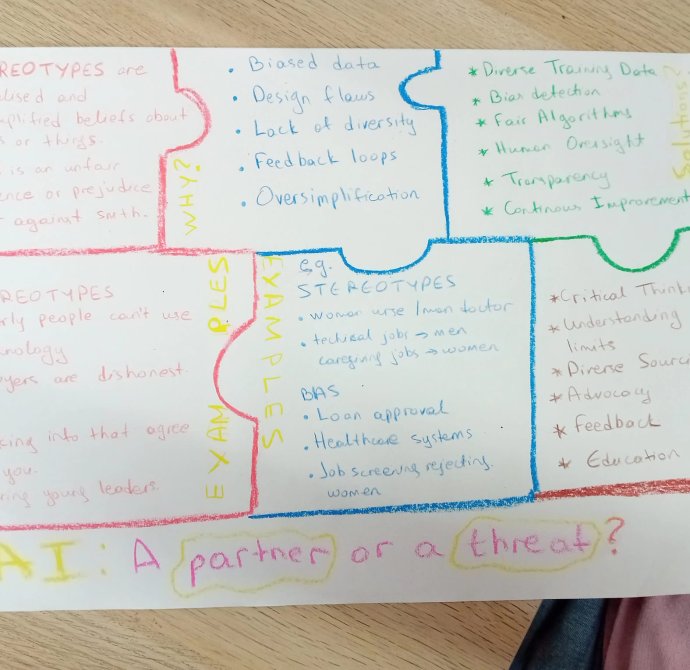 REOTYPES are
lised and
mplified beliefs about
s or things.
is an unfair
ence or prejudice
against smth.
WHY?
• Biased data
• Design flaws
• Lack of diversity
• Feedback loops
• Oversimplification
* Diverse Training Data
* Bias detection
* Fair Algorithms
* Human Oversight
* Transparency
* Continous Improvement
Solutions?
REOTYPES
rly people can't use
nology
yers are dishonest.
king into that agree
you.
ring young leaders.
EXAMPLES
EXAMPLES
e.g.
STEREOTYPES
• woman urse / man doctor
• techical jobs → men
caregiving jobs → women
BIAS
• Loan approval
• Healthcare systems
• Job screening rejecting
women
* Critical Thinki
* Understanding
limits
* Diverse Sourc
* Advocacy
* Feedback
* Education
AI: A partner or a threat?